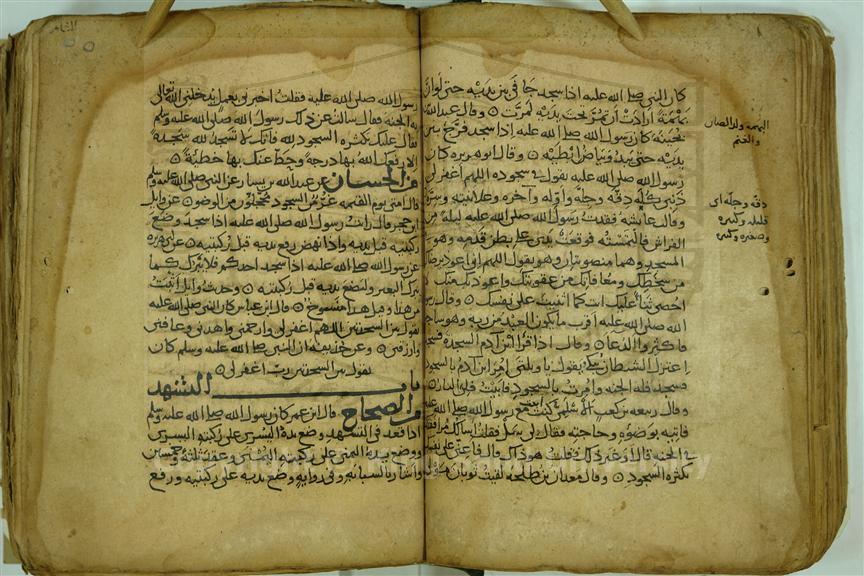 كان النبى صلى الله عليه اذا سجد جافى بين يديه حتى لو ان
بهمة ارادت ان تمر تحت يديه لمرت وقال عبد الله
بن بحينة كان رسول الله صلى الله عليه اذا سجد فرج بين
يديه حتى يبدو بياض ابطيه وقال ابو هريرة كان
رسول الله صلى الله عليه يقول فى سجوده اللهم اغفر لى
ذنبى كله دقه وجله واوله وآخره وعلانيته وسره
وقالت عائشة فقدت رسول الله صلى الله عليه ليلة من
الفراش فالتمسته فوقعت يدى على بطن قدميه وهو فى
المسجد وهما منصوبتان وهو يقول اللهم انى اعوذ برضاك
من سخطك ومعافاتك من عقوبتك واعوذ بك منك
لا احصى ثناء عليك انت كما اثنيت على نفسك وقال رسول
الله صلى الله عليه اقرب ما يكون العبد من ربه وهو ساجد
فاكثروا الدعاء وقال اذا قرأ ابن آدم السجدة فسجد
اعتزل الشيطان يبكى يقول يا ويلتى امر ابن آدم بالسجود
فسجد فله الجنة وامرت بالسجود فابيت فلى النار
وقال ربيعة بن كعب الاسلمى كنت ابيت مع رسول الله صلى الله عليه
فاتيته بوضوئه وحاجته فقال لى سل فقلت اسألك مرافقتك
فى الجنة قال او غير ذلك قلت هو ذاك قال فاعنى على نفسك
بكثرة السجود وقال معدان بن طلحة لقيت ثوبان مولى
البهمه ولد الضان
والغنم
دقه وجله اى
قليله وكثيره
وصغيره وكبيره
رسول الله صلى الله عليه فقلت اخبرنى بعمل يدخلنى الله تعالى
به الجنة فقال سالت عن ذلك رسول الله صلى الله عليه وسلم
فقال عليك بكثرة السجود لله فانك لا تسجد لله سجدة
الا رفعك الله بها درجة وحط عنك بها خطيئة
من الحسان عن عبد الله بن بسر عن النبى صلى الله عليه وسلم
قال امتى يوم القيمة غر من السجود محجلون من الوضوء عن وائل
ابن حجر قال رايت رسول الله صلى الله عليه اذا سجد وضع
ركبتيه قبل يديه واذا نهض رفع يديه قبل ركبتيه عن ابى هريرة
عن رسول الله صلى الله عليه اذا سجد احدكم فلا يبرك كما
يبرك البعير وليضع يديه قبل ركبتيه وحديث وائل اثبت
من هذا وقيل هذا منسوخ قال ابن عباس كان النبى صلى الله عليه
يقول بين السجدتين اللهم اغفر لى وارحمنى واهدنى وعافنى
وارزقنى وعن حذيفة ان النبى صلى الله عليه وسلم كان
يقول بين السجدتين رب اغفر لى
باب التشهد
من الصحاح قال ابن عمر كان رسول الله صلى الله عليه وسلم
اذا قعد فى التشهد وضع يده اليسرى على ركبته اليسرى
ووضع يده اليمنى على ركبته اليمنى وعقد ثلثة وخمسين
واشار بالسبابة وفى رواية وضع يديه على ركبتيه ورفع